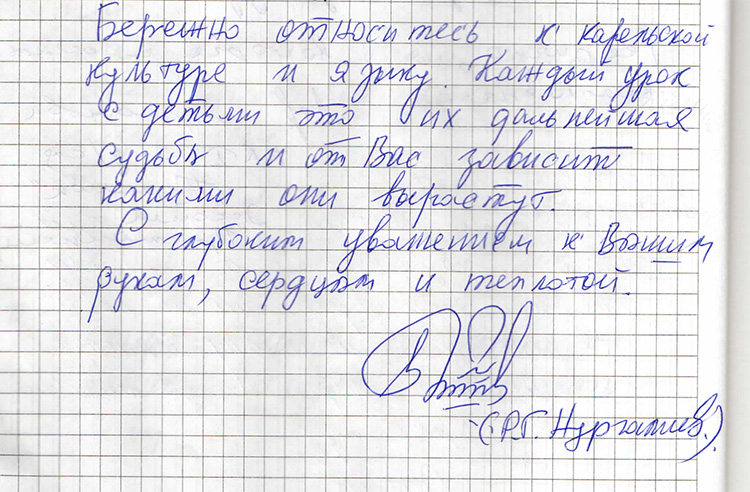 Бережно относитесь к карельской
культуре и языку. Каждый урок
с детьми это их дальнейшая
судьба и от Вас зависит
какими они вырастут.
С глубоким уважением к Вашим
рукам, сердцам и теплотой.
(Р.Г. Нургалиев.)